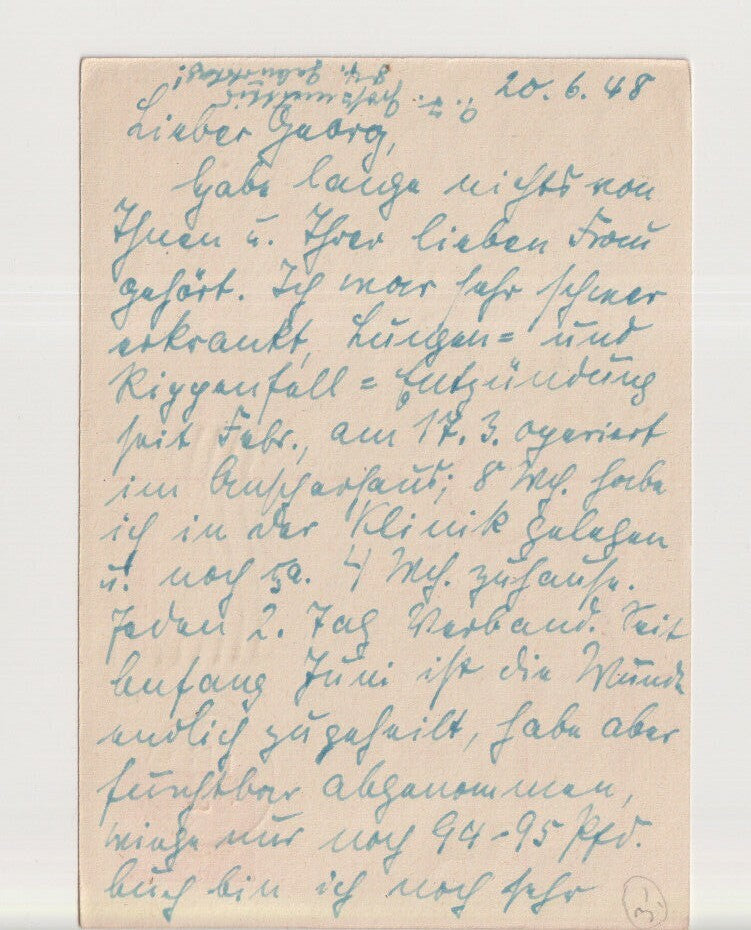 20. 6. 48
Lieber Georg,
habe lange nichts von
Ihnen u. Ihrer lieben Frau
gehört. Ich war sehr schwer
erkrankt, Lungen= und
Rippenfell = Entzündung
seit Febr., am 17. 3. operiert
im Anscharhaus; 8 Wch. habe
ich in der Klinik gelegen
u. noch ca. 4 Wch. zuhause.
Jeden 2. Tag Verband. Seit
Anfang Juni ist die Wunde
endlich zugeheilt, habe aber
furchtbar abgenommen,
wiege nur noch 94-95 Pfd.
Auch bin ich noch sehr
Geburtstag!